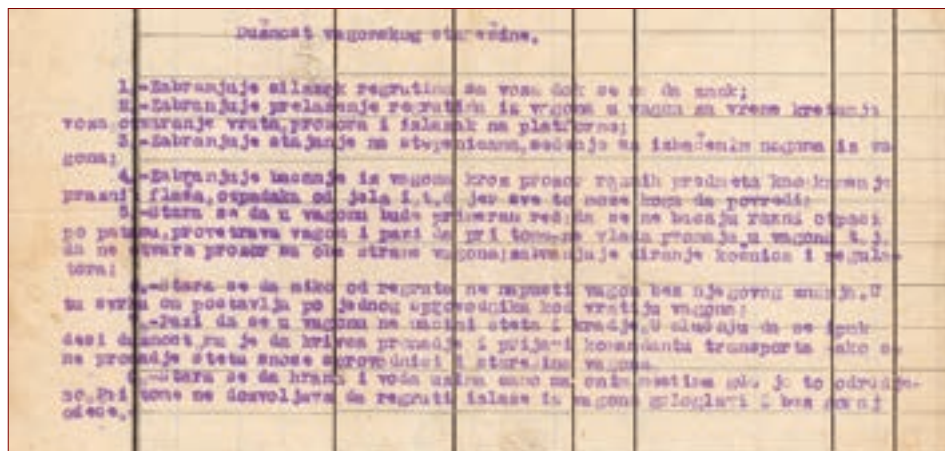 Dužnost vagonskog starešine.
1.-Zabranjuje silazak regrutima sa voza dok se ne da znak;
2.-Zabranjuje prelaženje regrutima iz vagona u vagon za vreme kretanja
voza, otvaranje vrata, prozora i izlazak na platforme;
3.-Zabranjuje stajanje na stepenicama, sedenje sa izbačenim nogama iz va-
gona;
4.-Zabranjuje bacanje iz vagona kroz prozor raznih predmeta kao: kamenje
prazni flaša, otpadaka od jela i.t.d. jer sve to može koga da povredi;
5.-Stara se da u vagonu bude primeran red; da se ne bacaju razni otpaci
po patosu, provetrava vagon i pazi da pri tome ne vlada promaja, u vagonu t.j.
da ne otvara prozor sa obe strane vagona; zabranjuje diranje kočnica i regula-
tora;
-Stara se da niko od regruta ne napusti vagon bez njegovog znanja. U
tu svrhu on postavlja po jednog sprovodnika kod vratiju vagona;
-Pazi da se u vagonu ne učini šteta i kradje. U slučaju da se ipak
desi dužnost mu je da krivca pronadje i prijavi komandantu transporta ako se
ne pronadje štetu snose sprovodnici i starešina vagona.
-Stara se da hranu i vodu uzima samo na onim mestima gde je to odredje-
no. Pri tome ne dozvoljava da regruti izlaze iz vagona gologlavi i bez gornj
odeće.-